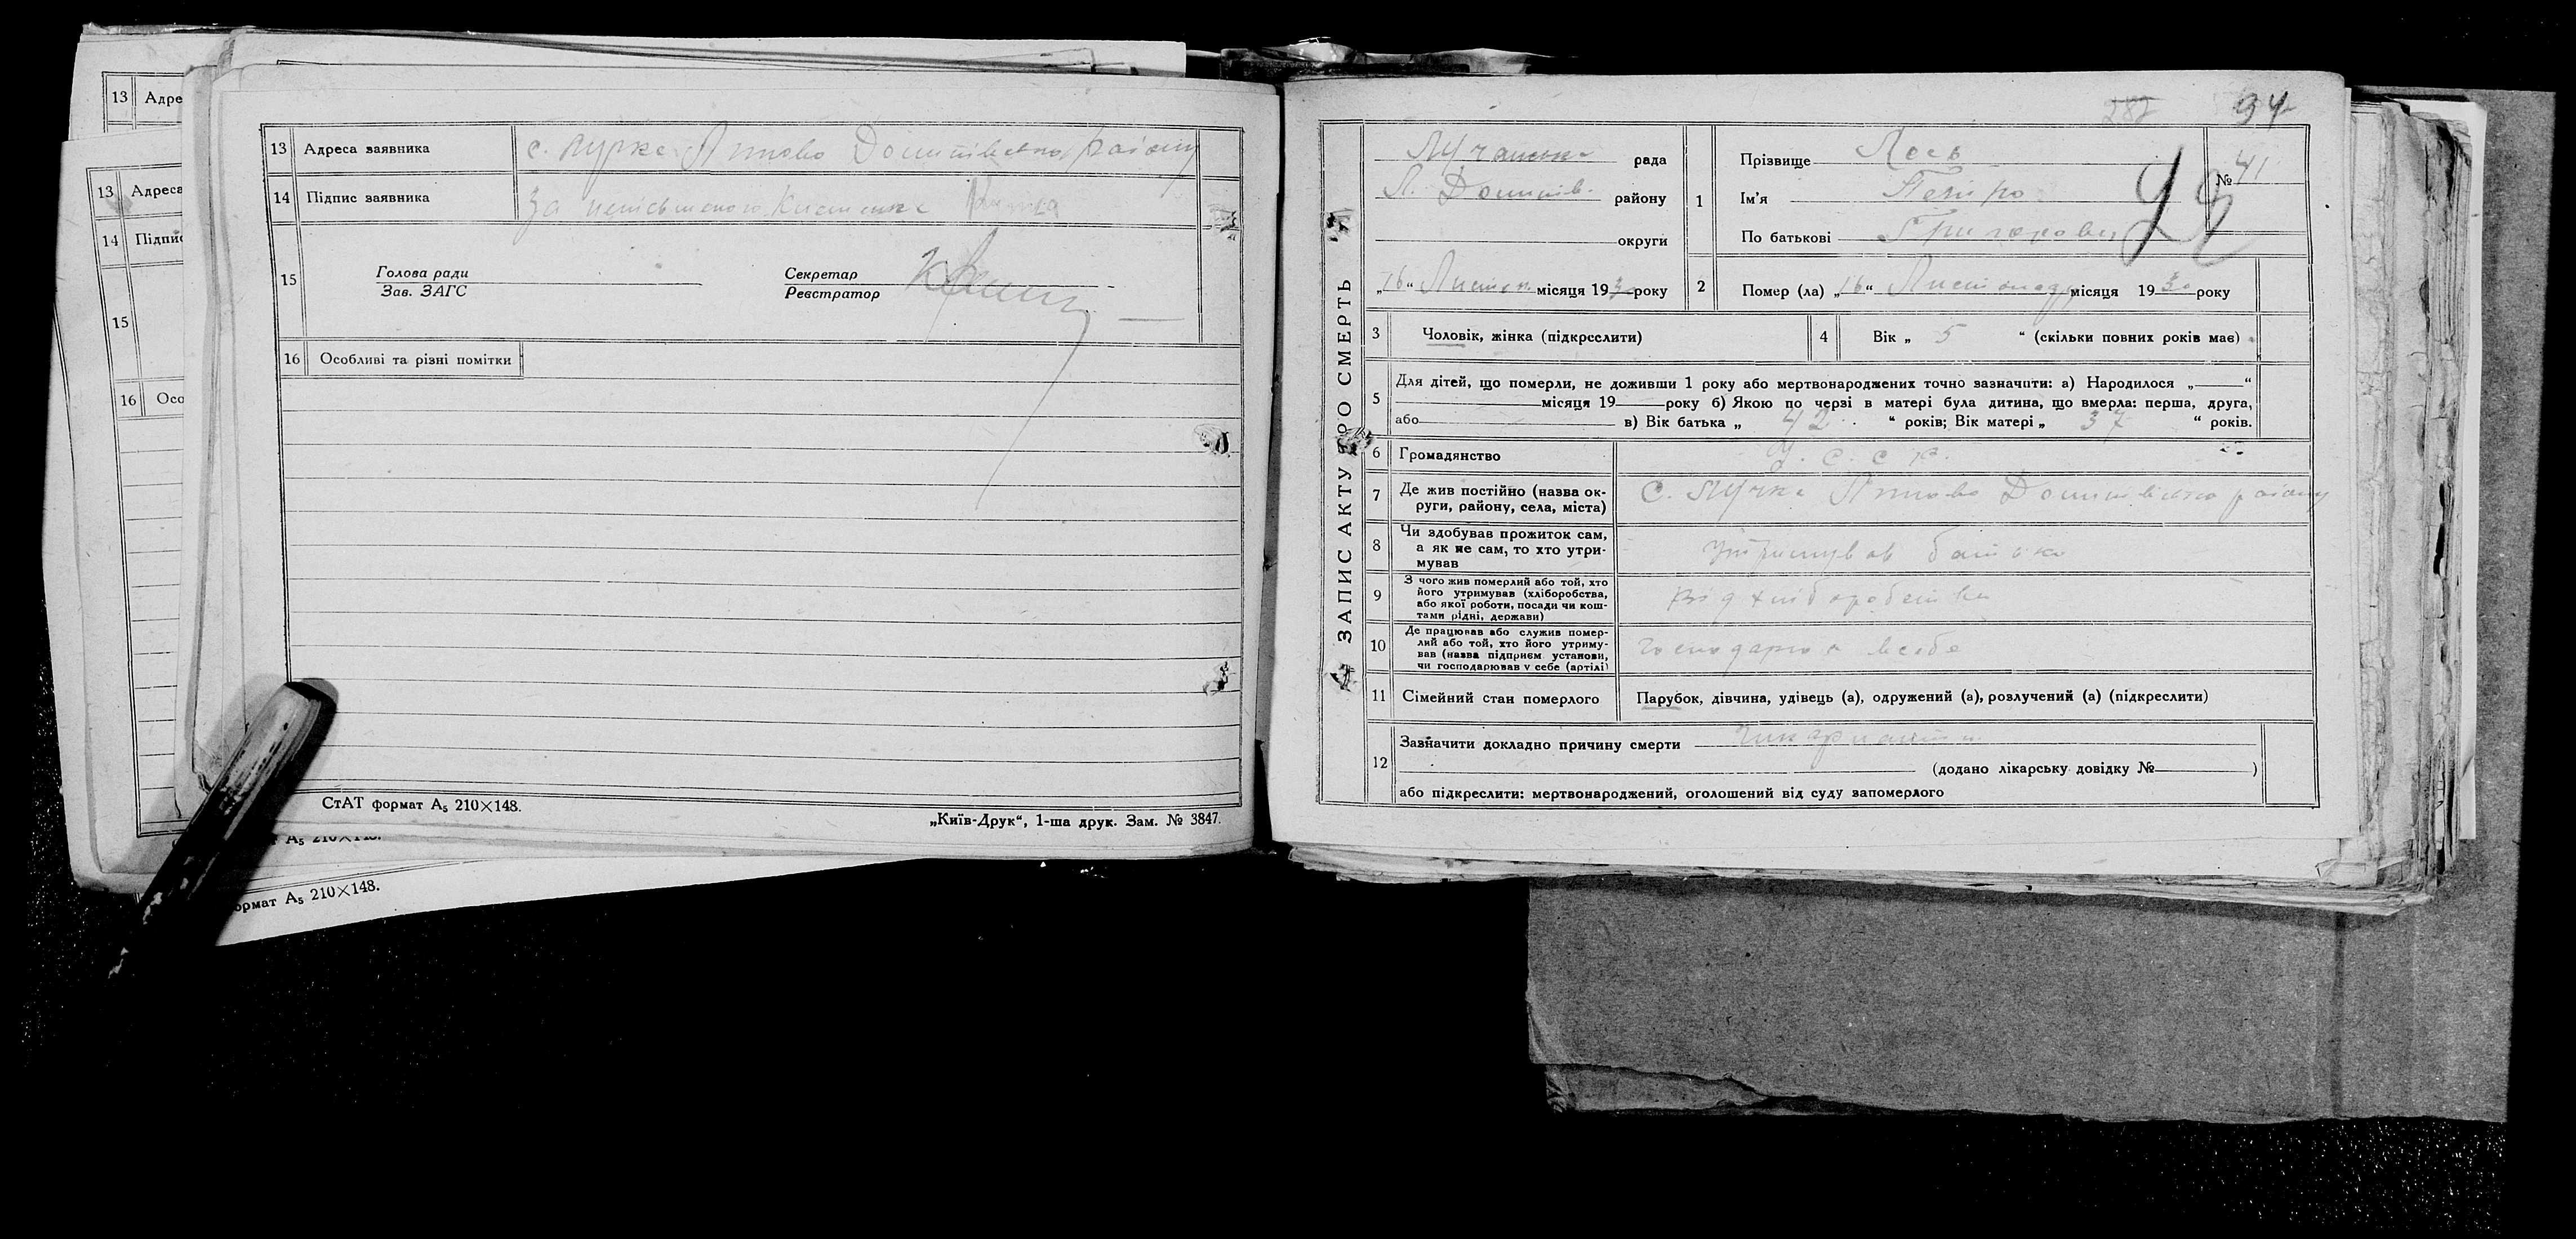 13 Адре
13 Адреса
14 Підпис
15
16 Осо
13 Адреса заявника
14 Підпис заявника За неписьменого
15 Голова ради
Зав. ЗАГС
Секретар
Реєстратор
16 Особливі та різні помітки
СтАТ формат А₅ 210×148.
„Київ-Друк“, 1-ша друк. Зам. № 3847.
т А₅ 210×148.
ормат А₅ 210×148.
282 94
ЗАПИС АКТУ ПРО СМЕРТЬ
Лучанська рада
району
округи
„16“ Листоп. місяця 1930 року
1 Прізвище Лось
Ім'я Петро
По батькові Григорович
№ 41
92
2 Помер (ла) „16“ Листопада місяця 1930 року
3 Чоловік, жінка (підкреслити)
4 Вік „ 5 “ (скільки повних років має)
5 Для дітей, що померли, не доживши 1 року або мертвонароджених точно зазначити: а) Народилося „ “
місяця 19 року б) Якою по черзі в матері була дитина, що вмерла: перша, друга,
або в) Вік батька „ 42 “ років; Вік матері „ 37 “ років.
6 Громадянство У.С.С.Р.
7 Де жив постійно (назва ок-
руги, району, села, міста)
с. Лучка району
8 Чи здобував прожиток сам,
а як не сам, то хто утри-
мував
Утримував батько
9 З чого жив померлий або той, хто
його утримував (хліборобства,
або якої роботи, посади чи кош-
тами рідні, держави)
Від хліборобства
10 Де працював або служив помер-
лий або той, хто його утриму-
вав (назва підприєм установи,
чи господарював у себе (артілі)
11 Сімейний стан померлого Парубок, дівчина, удівець (а), одружений (а), розлучений (а) (підкреслити)
12 Зазначити докладно причину смерти
(додано лікарську довідку № )
або підкреслити: мертвонароджений, оголошений від суду запомерлого